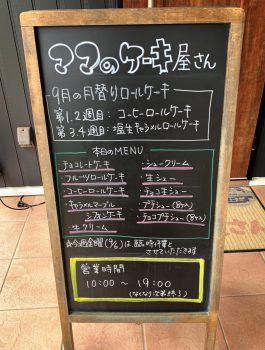 ママのケーキ屋さん
9月の月替りロールケーキ
第1.2週目：コーヒーロールケーキ
第3.4週目：塩生キャラメルロールケーキ
本日のMENU
チョコレートケーキ
フルーツロールケーキ
コーヒーロールケーキ
キャラメルマーブル
シフォンケーキ
生クリーム
・シュークリーム
・生シュー
・チョコ生シュー
・プチシュー(8ケ入)
・チョコプチシュー(8ケ入)
☆今週金曜(9/6)は臨時休業と
させていただきます
営業時間
10:00 〜 19:00
(なくなり次第終了)